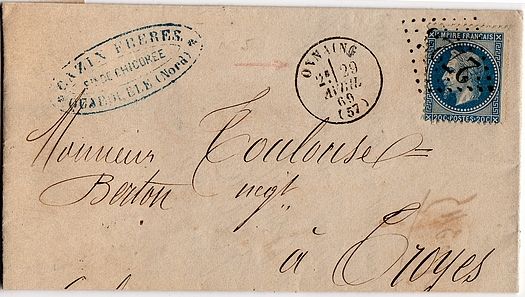 CAZIN FRERES.
DE CHICORÉE
(Nord)
ONNAING
2E 29
AVRIL
69
(57)
EMPIRE FRANÇAIS
20 C POSTES 20 C
Monsieur Toulouse=
Berton negt
à Troyes